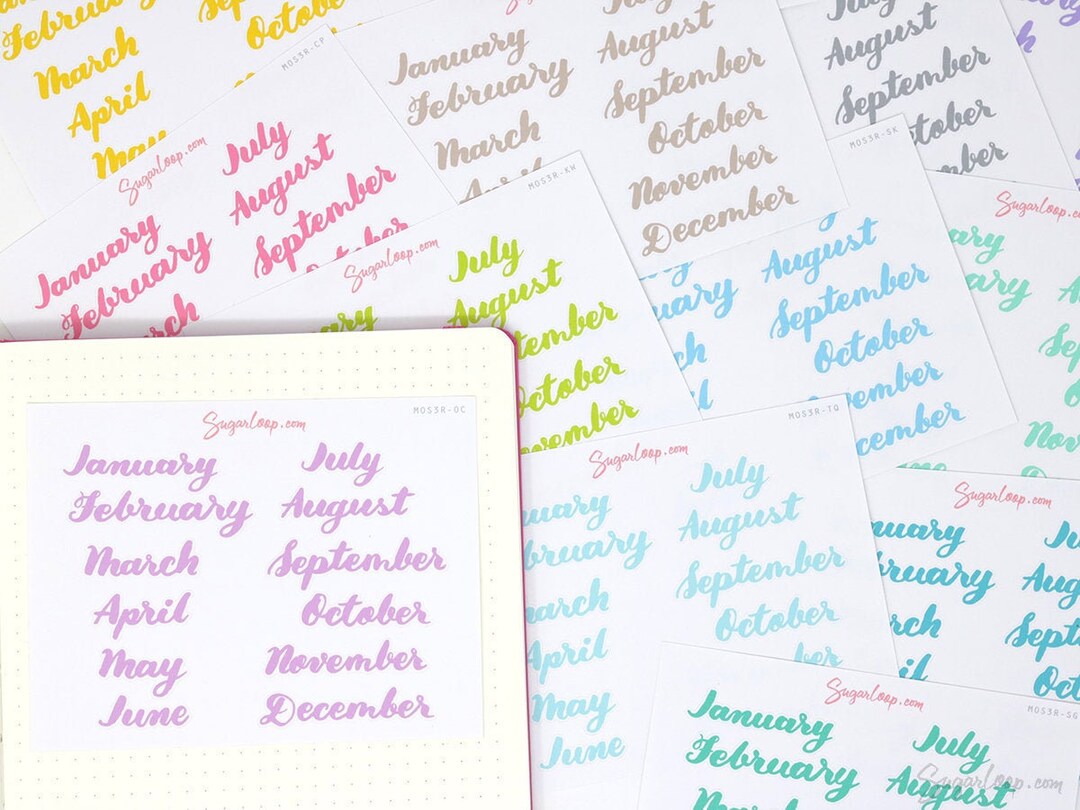 February
March
April
May
October
MOS3R-CP
Sugarloop.com
January
February
March
July
August
September
October
January
February
March
April
August
September
October
November
December
MOS3R-KW
Sugarloop.com
July
August
September
October
November
August
September
October
MOS3R-SK
August
September
October
November
December
Sugarloop.com
MOS3R-OC
Sugarloop.com
January
February
March
April
May
June
July
August
September
October
November
December
MOS3R-TQ
Sugarloop.com
January
February
March
April
May
June
July
August
September
October
Sugarloop.com
January
February
March
MOS3R-SG
Sugarloop.com
January
February
March
July
August
Sugarloop.com